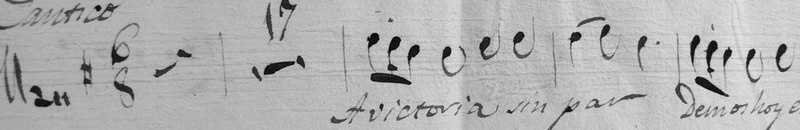 Cantico
6 17
8
A victoria sin par Demos hoy e